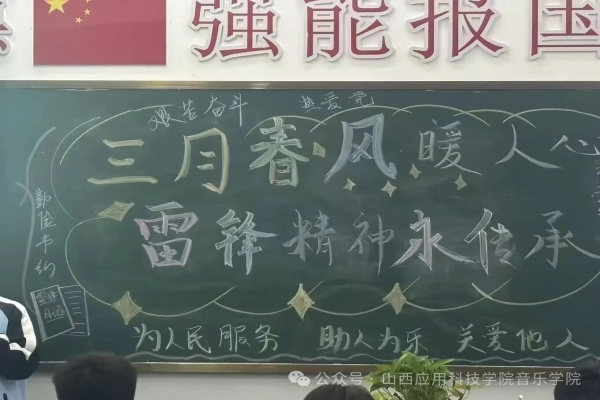 强能报国
艰苦奋斗 热爱党
三月春风暖人心
雷锋精神永传承
勤俭节约
为人民服务 助人为乐 关爱他人
公众号·山西应用科技学院音乐学院